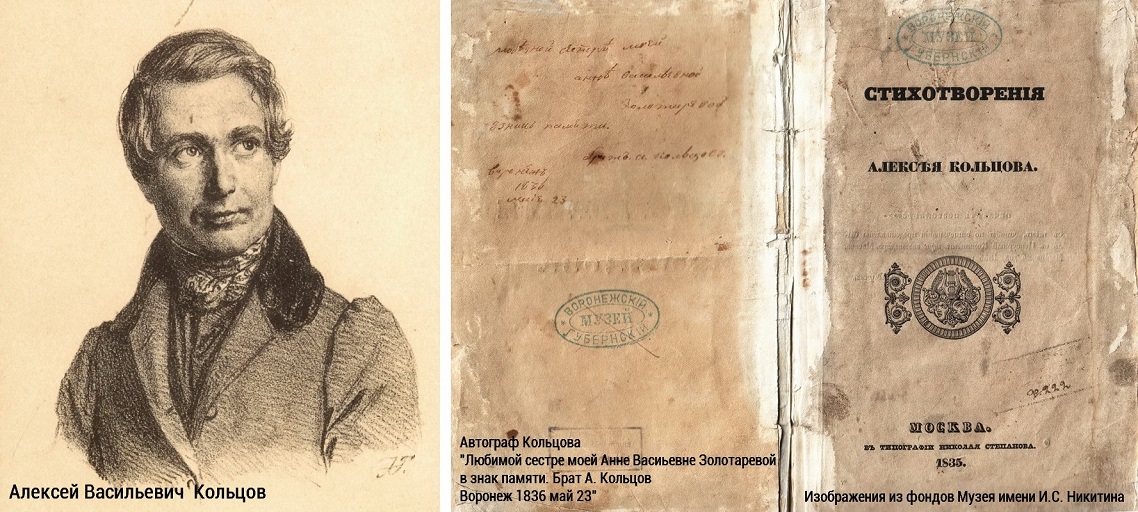 Алексей Васильевич Кольцов
сестрѣ моей
аннѣ
памяти.
а. кольцовъ.
1836
23
ВОРОНЕЖСКІЙ
МУЗЕЙ
ГУБЕРНСКІЙ
Автограф Кольцова
"Любимой сестре моей Анне Васиьевне Золотаревой
в знак памяти. Брат А. Кольцов
Воронеж 1836 май 23"
ВОРОНЕЖСКІЙ
МУЗЕЙ
ГУБЕРНСКІЙ
СТИХОТВОРЕНІЯ
АЛЕКСѢЯ КОЛЬЦОВА.
МОСКВА.
ВЪ ТИПОГРАФІИ НИКОЛАЯ СТЕПАНОВА.
1835.
Изображения из фондов Музея имени И.С. Никитина